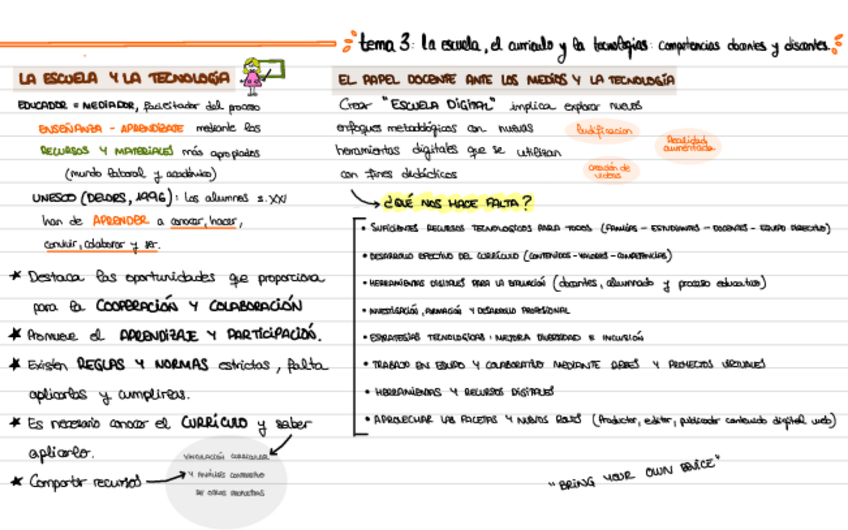 tema 3: la escuela, el currículo y las tecnologías: competencias docentes y discentes.
LA ESCUELA Y LA TECNOLOGÍA
EDUCADOR = MEDIADOR, facilitador del proceso
ENSEÑANZA - APRENDIZAJE mediante los
RECURSOS Y MATERIALES más apropiados
(mundo laboral y académico)
UNESCO (DELORS, 1996): Los alumnos s.XXI
han de APRENDER a conocer, hacer,
convivir, colaborar y ser.
★ Destaca las oportunidades que proporciona
para la COOPERACIÓN Y COLABORACIÓN
★ Promueve el APRENDIZAJE Y PARTICIPACIÓN.
★ Existen REGLAS Y NORMAS estrictas, falta
aplicarlas y cumplirlas.
★ Es necesario conocer el CURRÍCULO y saber
aplicarlo.
★ Compartir recursos
VINCULACIÓN CURRICULAR
Y ANÁLISIS COMPARATIVO
DE OTRAS PROPUESTAS
EL PAPEL DOCENTE ANTE LOS MEDIOS Y LA TECNOLOGÍA
Crear "ESCUELA DIGITAL" implica explorar nuevos
enfoques metodológicos con nuevas
herramientas digitales que se utilizan
con fines didácticos
Ludificación
Realidad
aumentada
Creación de
vídeos
¿QUÉ NOS HACE FALTA?
• SUFICIENTES RECURSOS TECNOLÓGICOS PARA TODOS (FAMILIAS - ESTUDIANTES - DOCENTES - EQUIPO DIRECTIVO)
• DESARROLLO EFECTIVO DEL CURRÍCULO (CONTENIDOS - VALORES - COMPETENCIAS)
• HERRAMIENTAS DIGITALES PARA LA EVALUACIÓN (docentes, alumnado y proceso educativo)
• INVESTIGACIÓN, FORMACIÓN Y DESARROLLO PROFESIONAL
• ESTRATEGIAS TECNOLÓGICAS: MEJORA DIVERSIDAD E INCLUSIÓN
• TRABAJO EN EQUIPO Y COLABORATIVO MEDIANTE REDES Y PROYECTOS VIRTUALES
• HERRAMIENTAS Y RECURSOS DIGITALES
• APROVECHAR LAS FACETAS Y NUEVOS ROLES (Productor, editor, publicador contenido digital web)
"BRING YOUR OWN DEVICE"